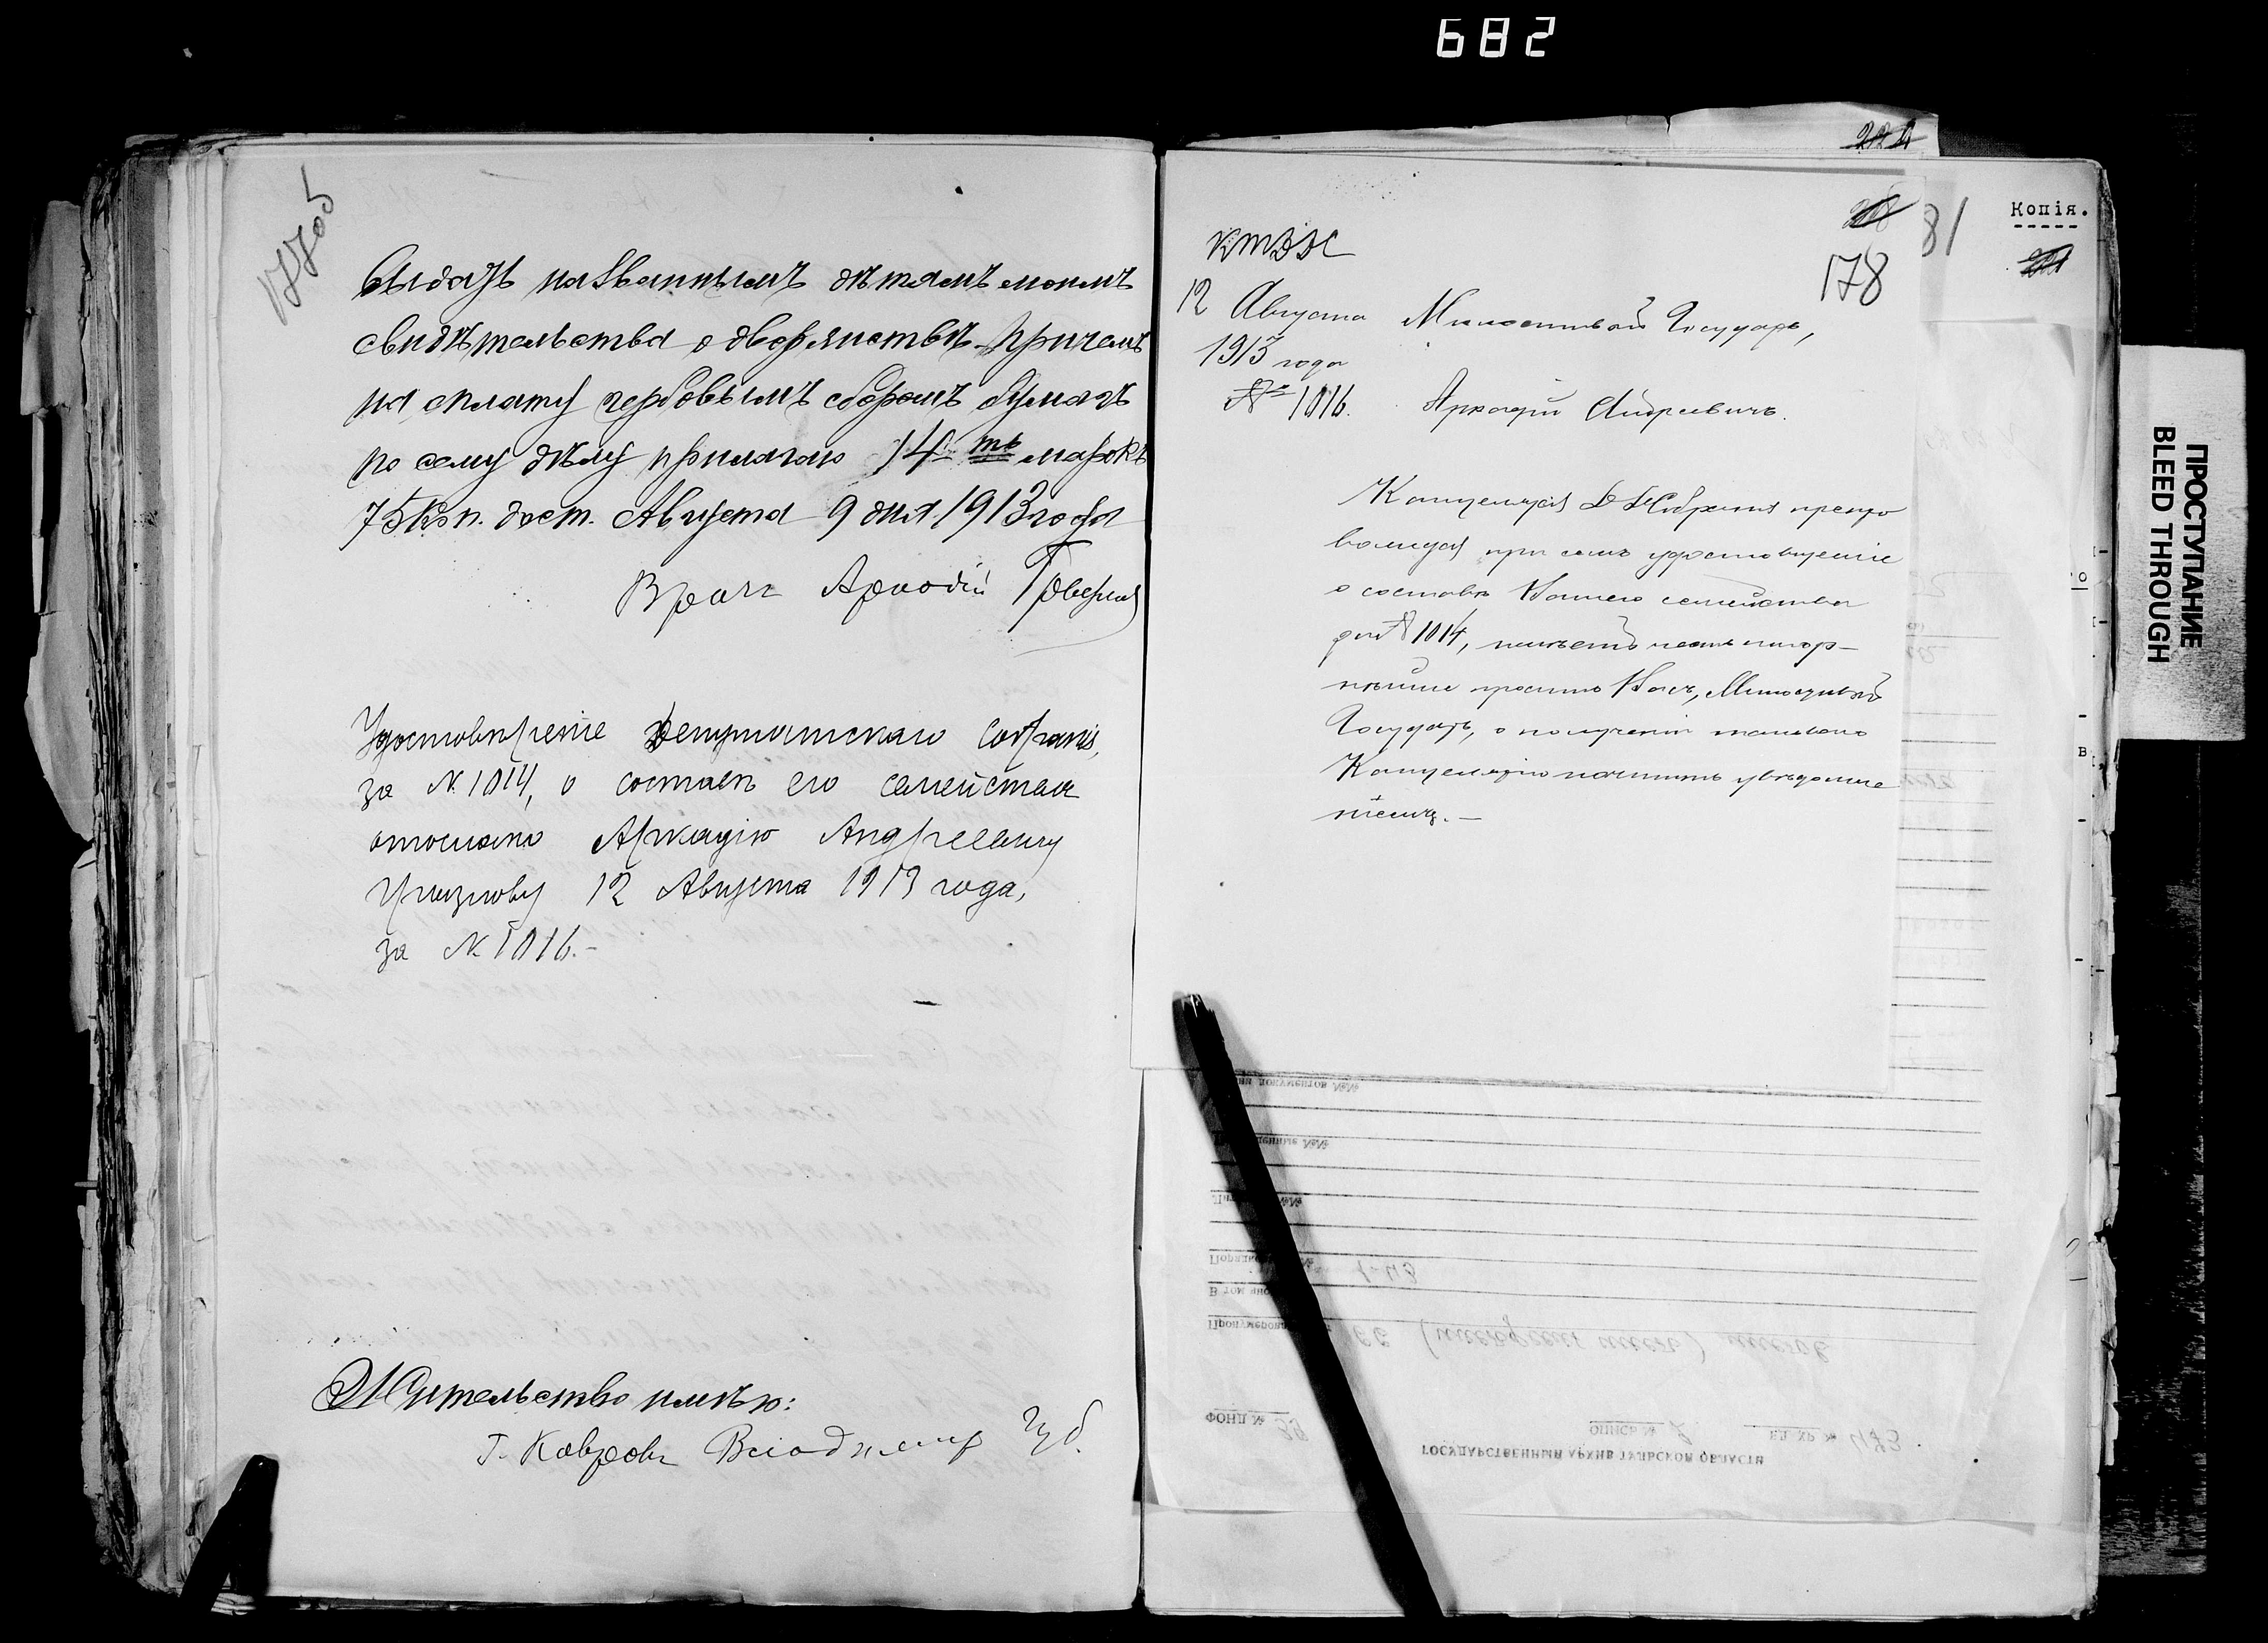 682
177 об
выдать названнымъ дѣтямъ моимъ
свидѣтельства о дворянствѣ. Причемъ
на оплату гербовымъ сборомъ бумагъ
по сему дѣлу прилагаю 14ть марокъ
75 коп. дост. Августа 9 дня 1913 года
Врачъ Аркадій
Удостовѣреніе Депутатскаго Собранія,
за № 1014, о составѣ его семейства
отослано Аркадію Андреевичу
12 Августа 1913 года,
за № 1016.-
Жительство имѣю:
г. Ковровъ Владимір губ.
222
218
178
КТДДС
12 Августа
1913 года
№ 1016.
Милостивый Государь,
Аркадій Андреевичъ.
Канцелярія Д Д Собранія препро
вождая при семъ удостовѣреніе
о составѣ Вашего семейства
за № 1014, имѣетъ честь покор-
нѣйше просить Васъ, Милостивый
Государь, о полученіи таковаго
Канцелярію почтить увѣдомле
ніемъ. —
81
Копія.
ПРОСТУПАНИЕ
BLEED THROUGH
документов №№
Пронумерова
ФОНД № 39
ОПИСЬ № 2
ЕД. ХР. № 473
ГОСУДАРСТВЕННЫЙ АРХИВ ТУЛЬСКОЙ ОБЛАСТИ